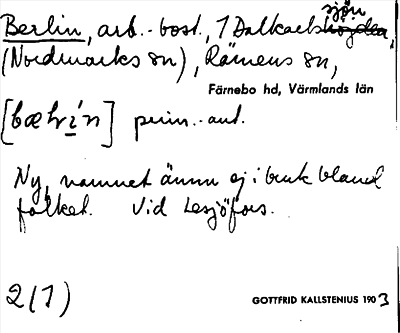 sjön
Berlin, arb.-bost., 1 Dalkarls höjden,
(Nordmarks sn), Rämens sn,
Färnebo hd, Värmlands län
[bæḷrín] prim.-aut.
Ny, namnet ännu ej i bruk bland
folket. Vid Lesjöfors.
2(1)
GOTTFRID KALLSTENIUS 1903